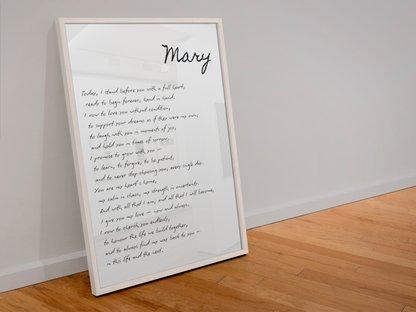 Mary
Today, I stand before you with a full heart,
ready to begin forever, hand in hand.
I vow to love you without condition,
to support your dreams as if they were my own,
to laugh with you in moments of joy,
and hold you in times of sorrow.
I promise to grow with you —
to learn, to forgive, to be patient,
and to never stop choosing you, every single day.
You are my heart's home,
my calm in chaos, my strength in uncertainty.
And with all that I am, and all that I will become,
I give you my love — now and always.
I vow to cherish you endlessly,
to honour the life we build together,
and to always find my way back to you —
in this life and the next.